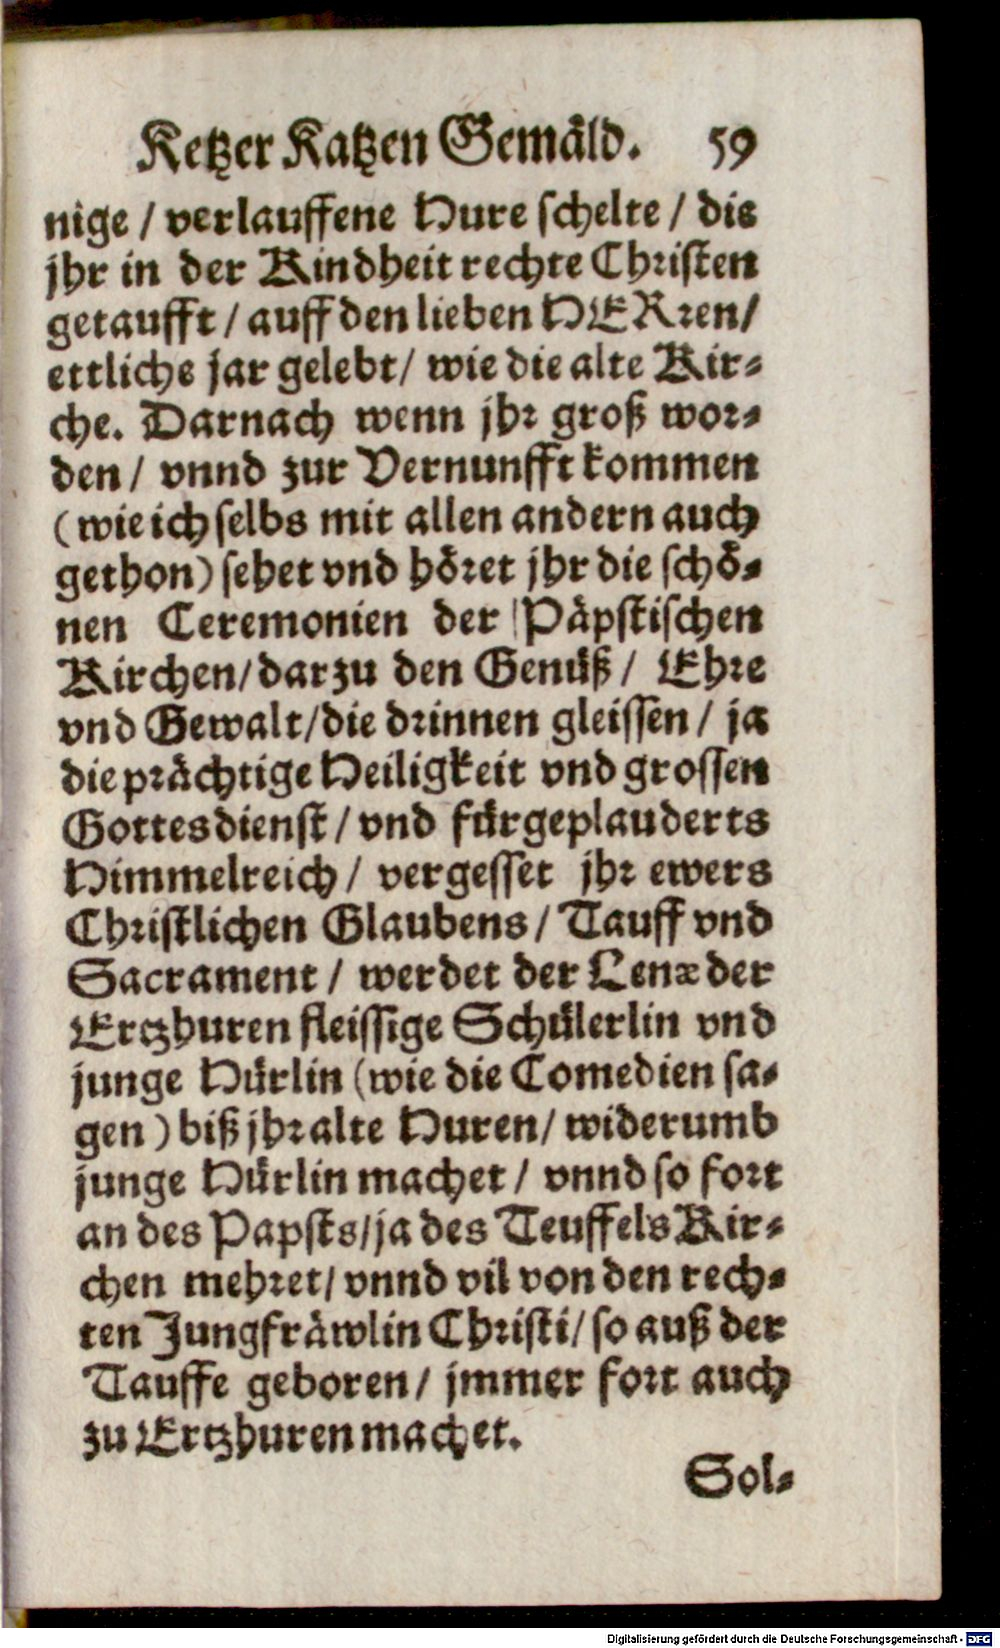 Ketzer Katzen Gemäld. 59
nige / verlauffene Hure schelte / die
jhr in der Kindheit rechte Christen
getaufft / auff den lieben HERren /
ettliche jar gelebt / wie die alte Kir-
che. Darnach wenn jhr groß wor-
den / vnnd zur Vernunfft kommen
(wie ich selbs mit allen andern auch
gethon) sehet vnd höret jhr die schö-
nen Ceremonien der Päpstischen
Kirchen / darzu den Genüß / Ehre
vnd Gewalt / die drinnen gleissen / ja
die prächtige Heiligkeit vnd grossen
Gottesdienst / vnd fürgeplauderts
Himmelreich / vergesset jhr ewers
Christlichen Glaubens / Tauff vnd
Sacrament / werdet der Lenæ der
Ertzhuren fleissige Schülerlin vnd
junge Hürlin (wie die Comedien sa-
gen) biß jhr alte Huren / widerumb
junge Hürlin machet / vnnd so fort
an des Papsts / ja des Teuffels Kir-
chen mehret / vnnd vil von den rech-
ten Jungfräwlin Christi / so auß der
Tauffe geboren / jmmer fort auch
zu Ertzhuren machet.
Sol-
Digitalisierung gefördert durch die Deutsche Forschungsgemeinschaft - DFG